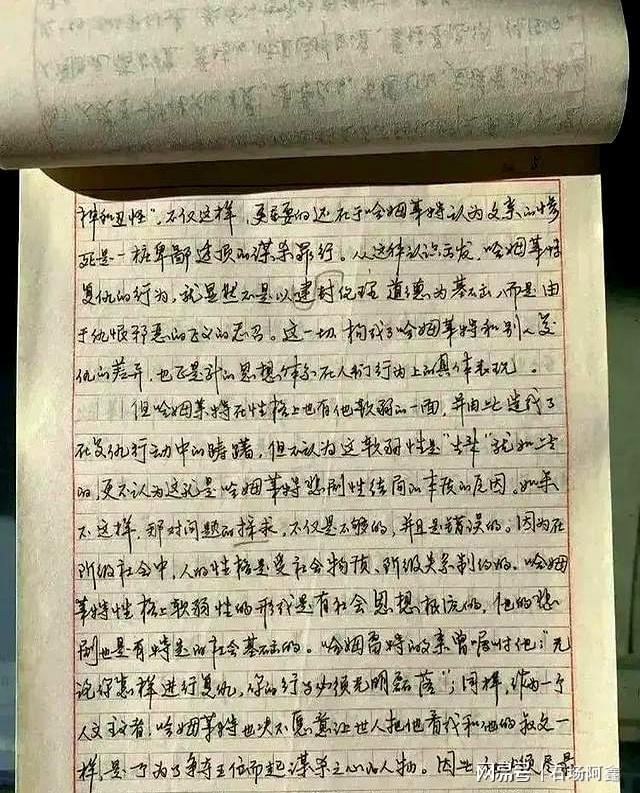 神和丑怪"。不仅这样，更重要的还在于哈姆莱特认为父亲的惨
死是一桩卑鄙透顶的谋杀罪行。从这种认识出发，哈姆莱特
复仇的行为，就显然不是以建封伦理道德为基础，而是由
于仇恨邪恶的正义的忍召。这一切构成了哈姆莱特和别人复
仇的差异，也正是新的思想体系在人们行为上的具体表现。
但哈姆莱特在性格上也有他软弱的一面，并由此造成了
在复仇行动中的踌躇，但不认为这软弱性是"生来"就如此
的，更不认为这就是哈姆莱特悲剧性结局的本质的原因。如果
不这样，那对问题的探求，不仅是不够的，并且是错误的。因为在
阶级社会中，人的性格是受社会物质、阶级关系制约的。哈姆
莱特性格上软弱性的形成是有社会思想根源的，他的悲
剧也是有特定的社会基础的。哈姆雷特的父亲曾嘱咐他："无
论你怎样进行复仇，你的行为必须光明磊落"；同样，作为一个
人文主义者，哈姆莱特也决不愿意让世人把他看成和他的叔父一
样，是一个为了争夺王位而起谋杀之心的人物。因此
网易号 | 石场阿鑫